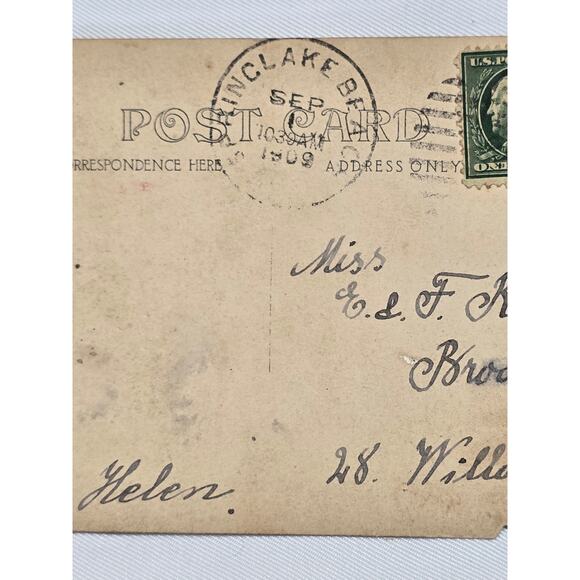 SPRINGLAKE BEAC
SEP
1
1030AM
1909
U.S.PO
POST CARD
RRESPONDENCE HERE
ADDRESS ONLY
ONE
Miss
E. & F. K
Broo
28. Willo
Helen.